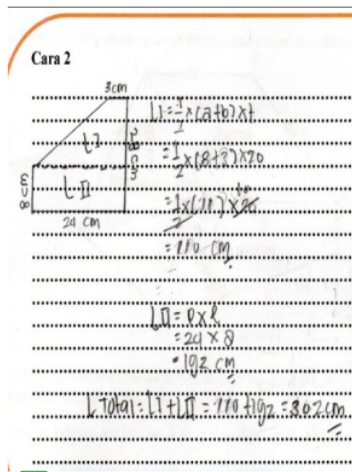 Cara 2
3cm
LI
LII
8 cm
24 cm
LI = 1/2 x (a+b) x t
= 1/2 x (8+3) x 20
= 1/2 x (11) x 20
= 110 cm
LII = p x l
= 24 x 8
= 192 cm
L Total = LI + LII = 110 + 192 = 302 cm